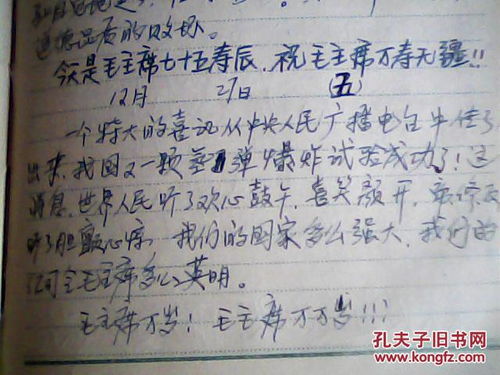 道德品质的败坏。
今天是毛主席七十五寿辰,祝毛主席万寿无疆!!
12月 27日 (五)
一个特大的喜讯从中央人民广播电台中传了
出来,我国又一颗氢弹爆炸试验成功了!这
消息,世界人民听了欢心鼓午,喜笑颜开,
听了胆颤心惊 我们的国家多么强大,我们的
毛主席多么英明。
毛主席万岁! 毛主席万万岁!!!
孔夫子旧书网
www.kongfz.com